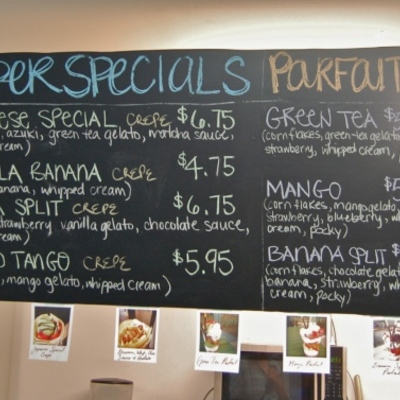 PER SPECIALS
ESE SPECIAL CREPE $6.75
, azuki, green tea gelato, matcha sauce,
eam)
LA BANANA CREPE $4.75
anana, whipped cream)
A SPLIT CREPE $6.75
strawberry vanilla gelato, chocolate sauce,
eam)
O TANGO CREPE $5.95
, mango gelato, whipped cream)
PARFAIT
GREEN TEA $
(cornflakes, green tea gelato
strawberry, whipped cream,
MANGO $
(corn flakes, mango gelato,
strawberry, blueberry, wh
cream, pocky)
BANANA SPLIT $
(corn flakes, chocolate gelat
banana, strawberry, wh
cream, pocky)
Green Tea Parfait
Mango Parfait